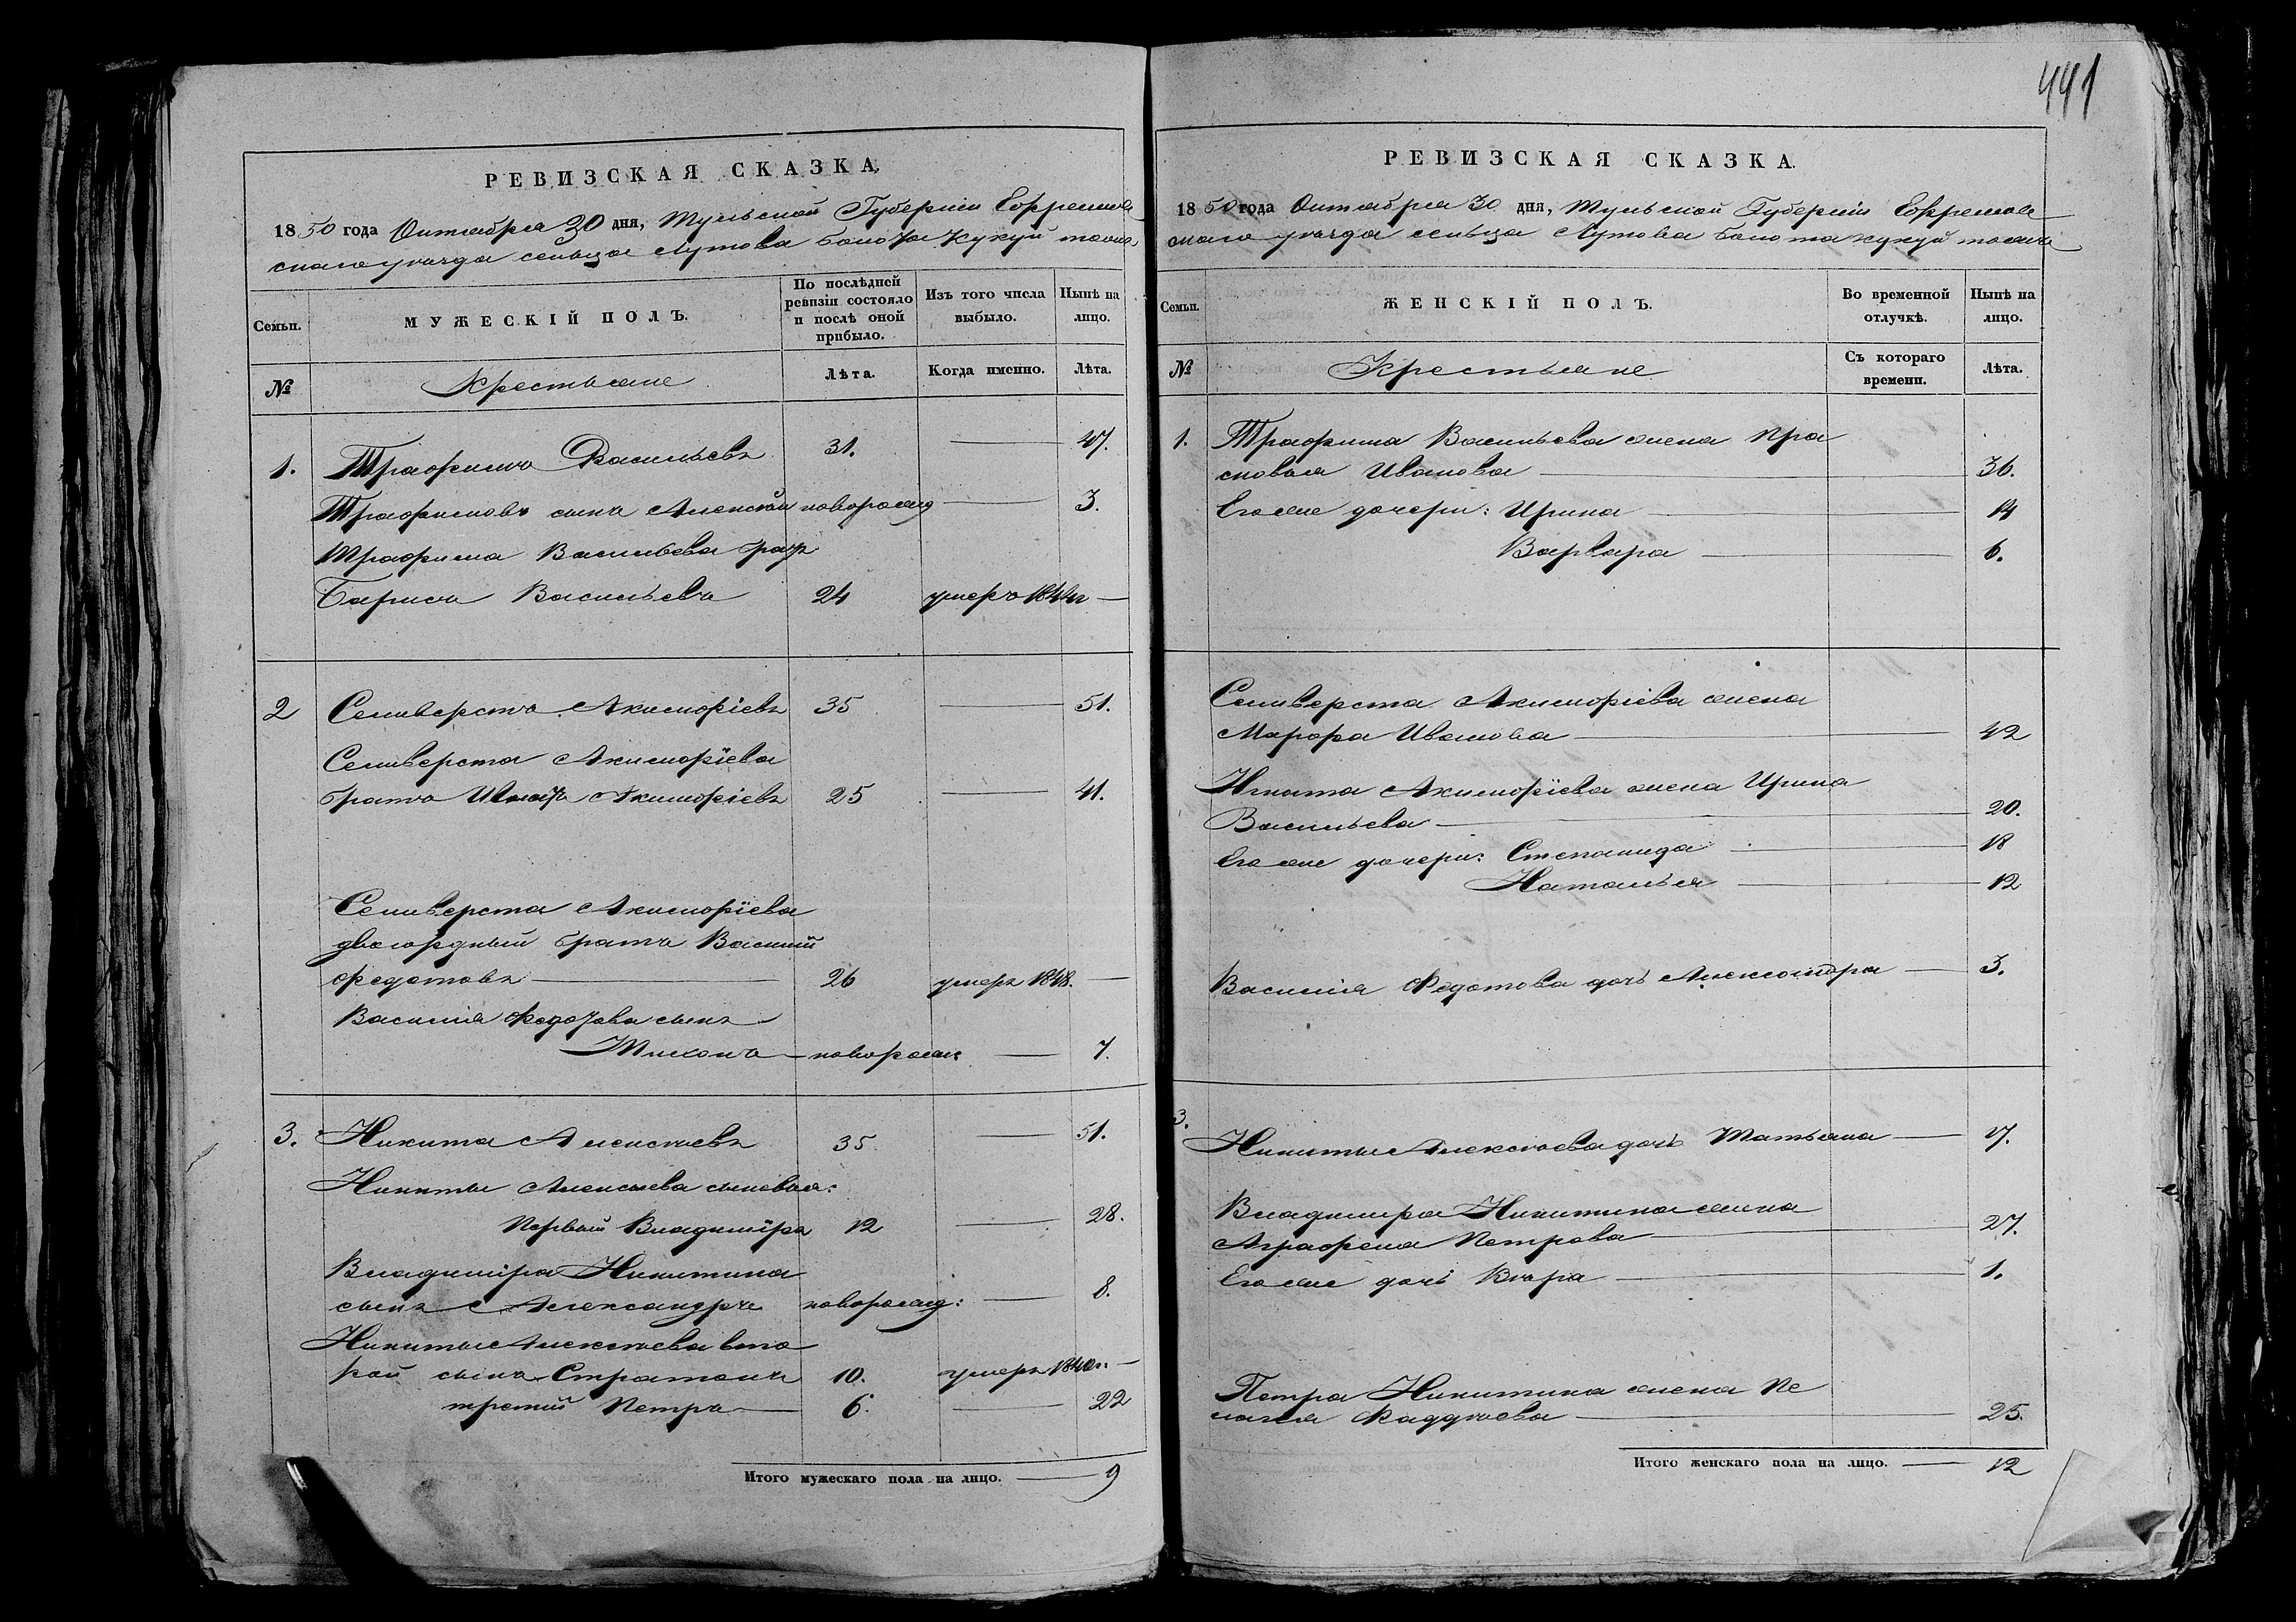 РЕВИЗСКАЯ СКАЗКА,
1850 года Октября 30 дня, Тульской Губернiи Ефремов
скаго уѣзда сельца Лутова Болота Кукуй тожъ
Семьи.
МУЖЕСКІЙ ПОЛЪ.
По послѣдней ревизіи состояло и послѣ оной прибыло.
Изъ того числа выбыло.
Нынѣ на лицо.
№
Крестьяне
Лѣта.
Когда именно.
Лѣта.
1. Трафимъ Васильевъ 31. 47.
Трафимовъ сынъ Алексѣй новорожд 3.
Трафима Васильева братъ
Барисъ Васильевъ 24 умеръ 1844г
2 Селиверстъ Акинфіевъ 35 51.
Селиверста Акинфіева
братъ Игнатъ Акинфіевъ 25 41.
Селиверста Акинфіева
двоюрдный братъ Василій
Федотовъ 26 умеръ 1848.
Василія Федотова сынъ
Тихонъ новорож: 7.
3. Никита Алексѣевъ 35 51.
Никиты Алексѣева сыновья:
Первый Владиміръ 12 28.
Владиміра Никитина
сынъ Александръ новорожд: 8.
Никиты Алексѣева вто
рой сынъ Стратонъ 10. умеръ 1840г.
третій Петръ 6. 22
Итого мужескаго пола на лицо. 9
441
РЕВИЗСКАЯ СКАЗКА.
1850 года Октября 30 дня, Тульской Губернiи Ефремов
скаго уѣзда сельца Лутова Болота Кукуй тожъ
Семьи.
ЖЕНСКІЙ ПОЛЪ.
Во временной отлучкѣ.
Нынѣ на лицо.
№
Крестьяне
Съ котораго времени.
Лѣта.
1. Трафима Васильева жена Пра
сковья Иванова 36.
Его же дочери: Ирина 14
Варвара 6.
Селиверста Акинфіева жена
Марфа Иванова 42
Игната Акинфіева жена Ирина
Васильева 20.
Его же дочери: Степанида 18
Наталья 12
Василія Федотова дочь Александра 3.
3.
Никиты Алексѣева дочь Татьяна 17.
Владимира Никитина жена
Аграфена Петрова 27.
Его же дочь Вѣра 1.
Петра Никитина жена Пе
лагея Фаддѣева 25.
Итого женскаго пола на лицо. 12